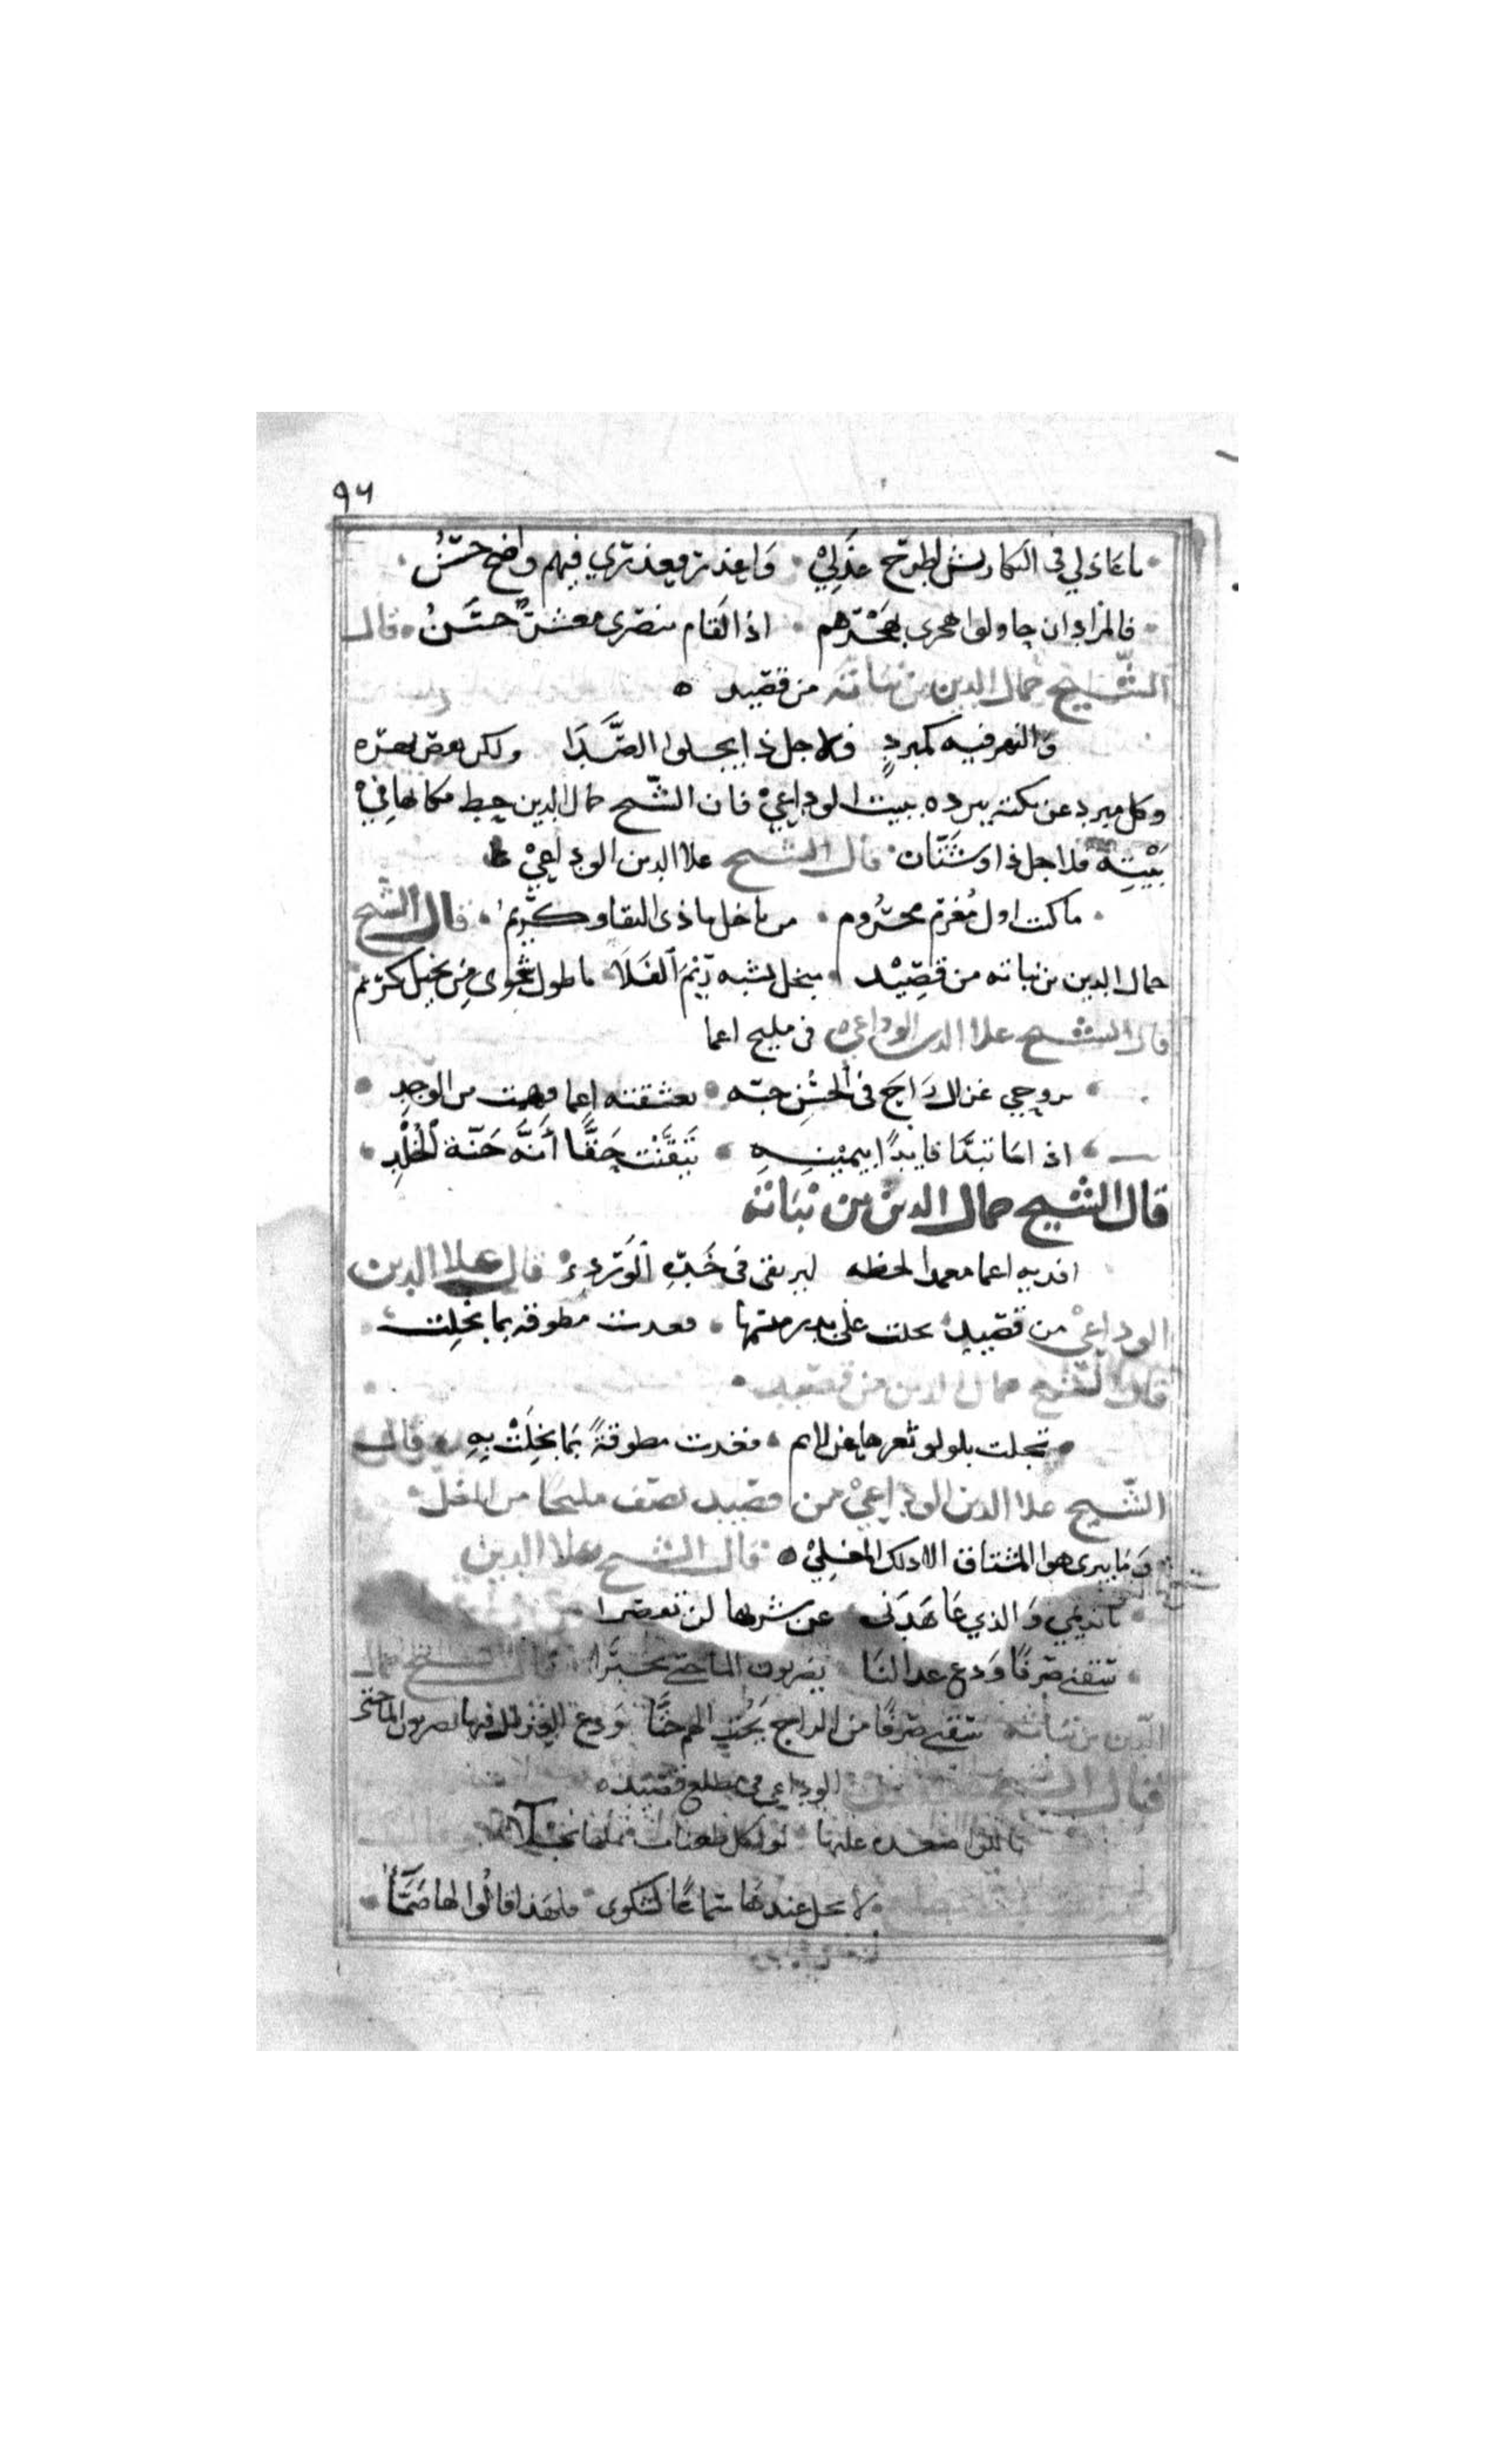 ٩٦
يا عاذلي في النكاريش اطرح عذلي وَاعذر فعذري فيهم واضح حسَنُ
فالمرادان حاولوا هجري بهجرهم اذا لقام بنصري معشرٌ خشنُ قال
الشيخ جمال الدين بن نباته من قصيد ه
وَالنهر فيه كمبردٍ فلاجل ذا يجلوا الصَّدَا ولكن
وكل مبرد عن نكته يبرده ببيت الوداعيْ فان الشيخ جمال الدين حط مكانها فيْ
بَيْتِه فلاجل ذا وشتّان قال الشيخ علا الدين الوداعيْ
ما كنت اول مُغرم محرُوم من باخل بادى النفار كريم قال الشيخ
جمال الدين بن نباته من قصِيْد مبخل يشبه ريْمَ الفَلَا يا طول شجوى مِن بخيل كريم
قال الشيخ علا الدين الوداعي في مليح اعما
بروحي غزال رَاحَ في الحُسن جنّه تعشقته اعما فهمت من الوجدِ
اذا مَا تبدَّا قايدًا بيميْنِهِ تَيَقَّنْت حَقًّا أَنَّه جَنّة الخُلْدِ
قال الشيخ جمال الدين بن نباته
افديه اعما مغمد الحظه ليرتقى في خَدِّهِ الوَرْدِيْ قال علا الدين
الوداعيْ من قصيد بخلت على بدر مبسمها فغدت مطوقه بما بخلت
قال الشيخ جمال الدين من قصيد
بخلت بلولو ثغرها عن لاثم فغدت مطوقةً بمَا بخِلَتْ بِهِ قال
الشيخ علا الدين الوداعيْ من قصيد يصف مليحًا من المغل
وَمَا يبرى هوا المشتاق الا ذلك المغليْ ه قال الشيخ علا الدين
يا نديمي وَالذي عَاهَدَنى عن شربها لن تقصرا
سقنى صرفًا وَدع عذالنَا يضربون الما حتى يخثرا قال الشيخ جمال
الدين بن نباته سقنى صرفًا من الراح يَحُث الهم حثًّا وَدع العذل فيها يضربون الما حتى
قال الشيخ الوداعي في مطلع قصيده

لا تخل عندهَا سمَاعًا لشكوى فلهذا قالوا لها صَمَّا